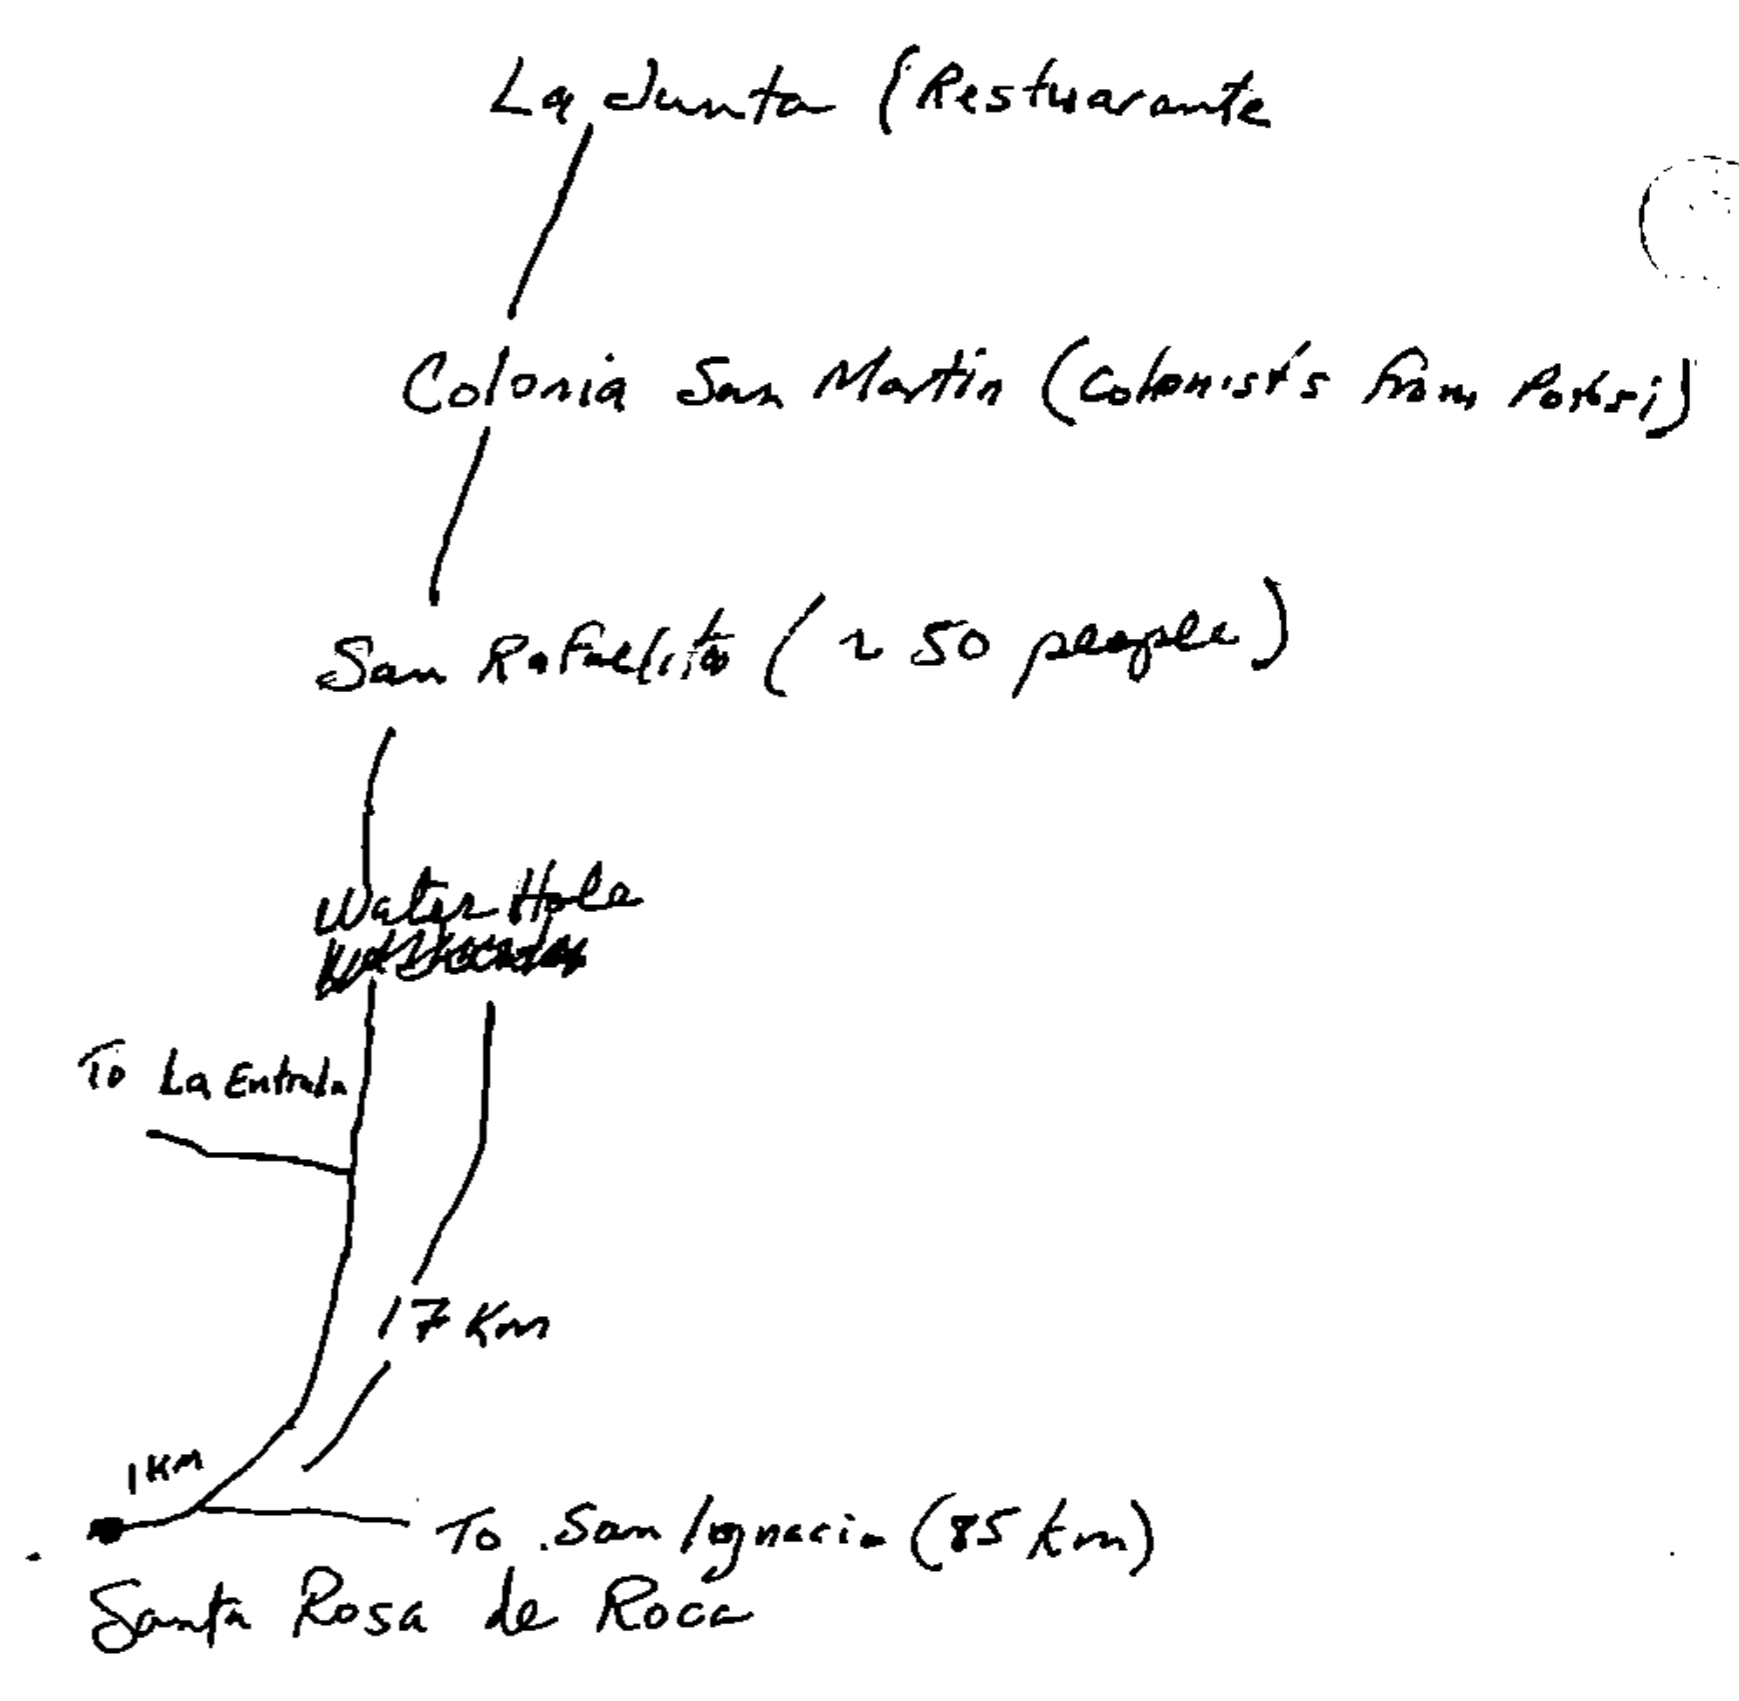 La Junta (Restuarante
Colonia San Martin (colonists from Potosi)
San Rafaelito (~ 50 people)
Water Hole
To La Entrada
17 Km
1 KM
To San Ignacio (85 km)
Santa Rosa de Roca